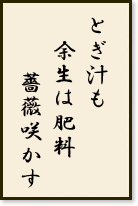 とぎ汁も
余生は肥料
薔薇咲かす